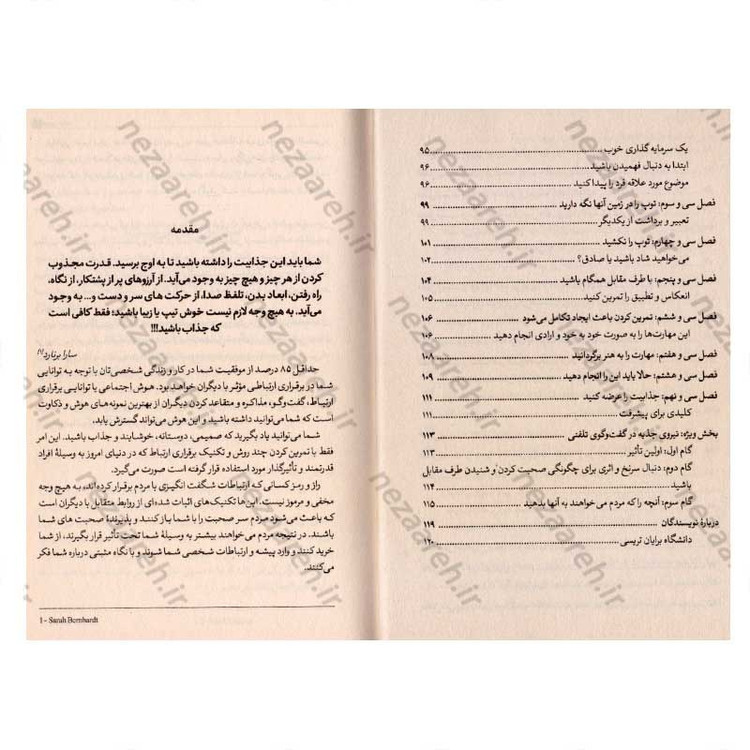 یک سرمایه گذاری خوب ..... ۹۵
ابتدا به دنبال فهمیدن باشید ..... ۹۶
موضوع مورد علاقه فرد را پیدا کنید ..... ۹۶
فصل سی و سوم: توپ را در زمین آنها نگه دارید ..... ۹۹
تعبیر و برداشت از یکدیگر ..... ۹۹
فصل سی و چهارم: توپ را نکشید ..... ۱۰۱
می‌خواهید شاد باشید یا صادق؟ ..... ۱۰۲
فصل سی و پنجم: با طرف مقابل همگام باشید ..... ۱۰۴
انعکاس و تطبیق را تمرین کنید ..... ۱۰۵
فصل سی و ششم: تمرین کردن باعث ایجاد تکامل می‌شود ..... ۱۰۶
این مهارت‌ها را به صورت خود به خود و ارادی انجام دهید ..... ۱۰۶
فصل سی و هفتم: مهارت را به هنر برگردانید ..... ۱۰۸
فصل سی و هشتم: حالا باید این را انجام دهید ..... ۱۰۹
فصل سی و نهم: جذابیت را عرضه کنید ..... ۱۱۱
کلیدی برای پیشرفت ..... ۱۱۱
بخش ویژه: نیروی جذبه در گفت‌وگوی تلفنی ..... ۱۱۳
گام اول: اولین تأثیر ..... ۱۱۳
گام دوم: دنبال سرنخ و اثری برای چگونگی صحبت کردن و شنیدن طرف مقابل
باشید ..... ۱۱۴
گام سوم: آنچه را که مردم می خواهند به آنها بدهید ..... ۱۱۵
دربارهٔ نویسندگان ..... ۱۱۹
دانشگاه برایان تریسی ..... ۱۲۰
مقدمه
شما باید این جذابیت را داشته باشید تا به اوج برسید. قدرت مجذوب
کردن از هر چیز و هیچ چیز به وجود می‌آید. از آرزوهای پر از پشتکار، از نگاه،
راه رفتن، ابعاد بدن، تلفظ صدا، از حرکت های سر و دست و... به وجود
می‌آید. به هیچ وجه لازم نیست خوش تیپ یا زیبا باشید؛ فقط کافی است
که جذاب باشید!!!
سارا برنارد(۱)
حداقل ۸۵ درصد از موفقیت شما در کار و زندگی شخصی‌تان با توجه به توانایی
شما در برقراری ارتباطی مؤثر با دیگران خواهد بود. هوش اجتماعی یا توانایی برقراری
ارتباط، گفت‌وگو، مذاکره و متقاعد کردن دیگران از بهترین نمونه‌های هوش و ذکاوت
است که شما می‌توانید داشته باشید و این هوش می‌تواند گسترش یابد.
شما می‌توانید یاد بگیرید که صمیمی، دوستانه، خوشایند و جذاب باشید. این امر
فقط با تمرین کردن چند روش و تکنیک برقراری ارتباط که در دنیای امروز به وسیلهٔ افراد
قدرتمند و تأثیرگذار مورد استفاده قرار گرفته است صورت می‌گیرد.
راز و رمز کسانی که ارتباطات شگفت انگیزی با مردم برقرار کرده‌اند، به هیچ وجه
مخفی و مرموز نیست. این‌ها تکنیک‌های اثبات شده‌ای از روابط متقابل با دیگران است
که باعث می‌شود مردم سر صحبت را با شما باز کنند و پذیرندهٔ صحبت های شما
باشند. در نتیجه مردم می خواهند بیشتر به وسیلهٔ شما تحت تأثیر قرار بگیرند، از شما
خرید کنند و وارد پیشه و ارتباطات شخصی شما شوند و با نگاه مثبتی درباره شما فکر
می‌کنند.
1 - Sarah Bernhardt
nezaareh.ir
nezaareh.ir
nezaareh.ir
nezaareh.ir
nezaareh.ir
nezaareh.ir